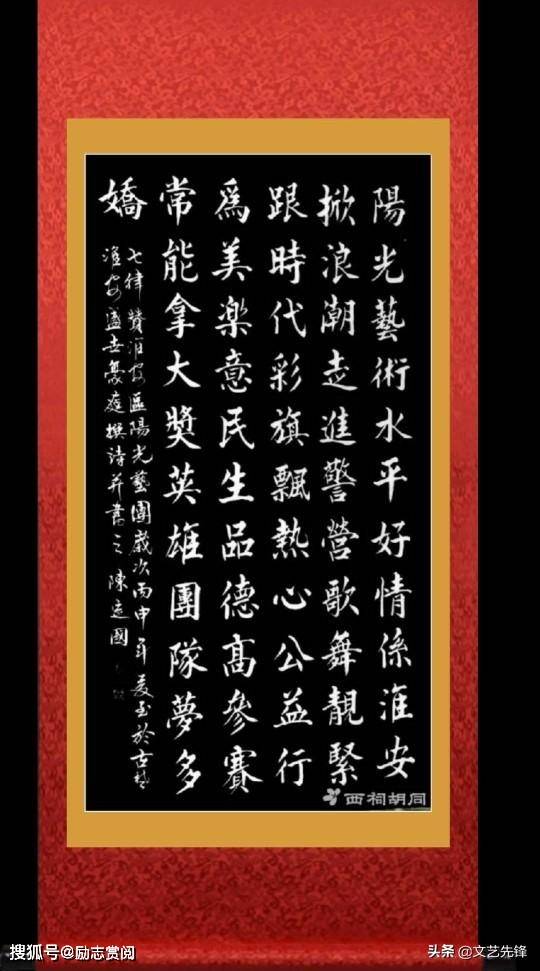 陽光藝術水平好情係淮安
掀浪潮走進警營歌舞靚緊
跟時代彩旗飄熱心公益行
爲美楽意民生品德高參賽
常能拿大獎英雄團隊夢多
嬌
七律贊淮安區陽光藝團歲次丙申年夏至於古楚
淮安盛世豪庭撰詩并書之陳國
西祠胡同
搜狐号@励志赏阅
头条@文艺先锋